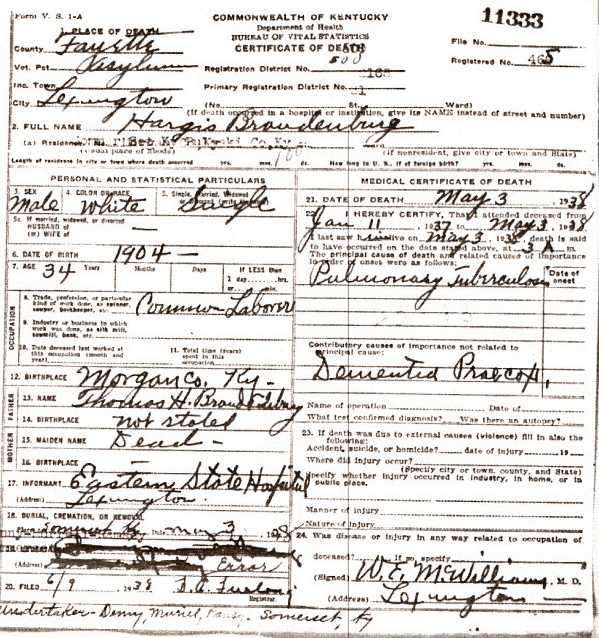 Form V. S. 1-A
COMMONWEALTH OF KENTUCKY
Department of Health
BUREAU OF VITAL STATISTICS
CERTIFICATE OF DEATH
11333
1. PLACE OF DEATH
County Fayette
Vot. Pct. Asylum
Inc. Town
City Lexington
File No.
Registered No. 465
Registration District No. 165
Primary Registration District No.
(No. St. Ward)
(If death occurred in a hospital or institution, give its NAME instead of street and number)
2. FULL NAME Hargis Brandenburg
(a) Residence. Pulaski Co. Ky
(Usual place of abode) (If nonresident, give city or town and State)
Length of residence in city or town where death occurred yrs. mos. ds. How long in U. S., if of foreign birth? yrs. mos. ds.
PERSONAL AND STATISTICAL PARTICULARS
3. SEX Male
4. COLOR OR RACE White
5. Single, Married, Widowed or Divorced (write the word) Single
5a. If married, widowed, or divorced
HUSBAND of
(or) WIFE of
6. DATE OF BIRTH 1904 -
7. AGE 34 Years Months Days If LESS than 1 day, hrs. or min.
OCCUPATION
8. Trade, profession, or particular kind of work done, as spinner, sawyer, bookkeeper, etc. Common Laborer
9. Industry or business in which work was done, as silk mill, sawmill, bank, etc.
10. Date deceased last worked at this occupation (month and year)
11. Total time (years) spent in this occupation
12. BIRTHPLACE Morgan Co. Ky -
FATHER
13. NAME Thomas H. Brandenburg
14. BIRTHPLACE not stated
MOTHER
15. MAIDEN NAME Dead -
16. BIRTHPLACE
17. INFORMANT Eastern State Hospital
(Address) Lexington
18. BURIAL, CREMATION, OR REMOVAL
Place Somerset Ky Date May 3 1938
(Address) Error
20. FILED 6/9 1938
Registrar.
Undertaker - Denny, Somerset, Ky
MEDICAL CERTIFICATE OF DEATH
21. DATE OF DEATH May 3 1938
22. I HEREBY CERTIFY, That I attended deceased from
Jan 11 1937 to May 3 1938
I last saw him alive on May 3 1938, death is said
to have occurred on the date stated above, at 3 A m.
The principal cause of death and related causes of importance
in order of onset were as follows:
Date of onset
Pulmonary Tuberculosis
Contributory causes of importance not related to
principal cause:
Dementia Praecox,
Name of operation Date of
What test confirmed diagnosis? Was there an autopsy?
23. If death was due to external causes (violence) fill in also the
following:
Accident, suicide, or homicide? date of injury 19
Where did injury occur?
(Specify city or town, county, and State)
Specify whether injury occurred in industry, in home, or in
public place.
Manner of injury
Nature of injury
24. Was disease or injury in any way related to occupation of
deceased? If so, specify
(Signed) W. E. McWilliams, M. D.
(Address) Lexington